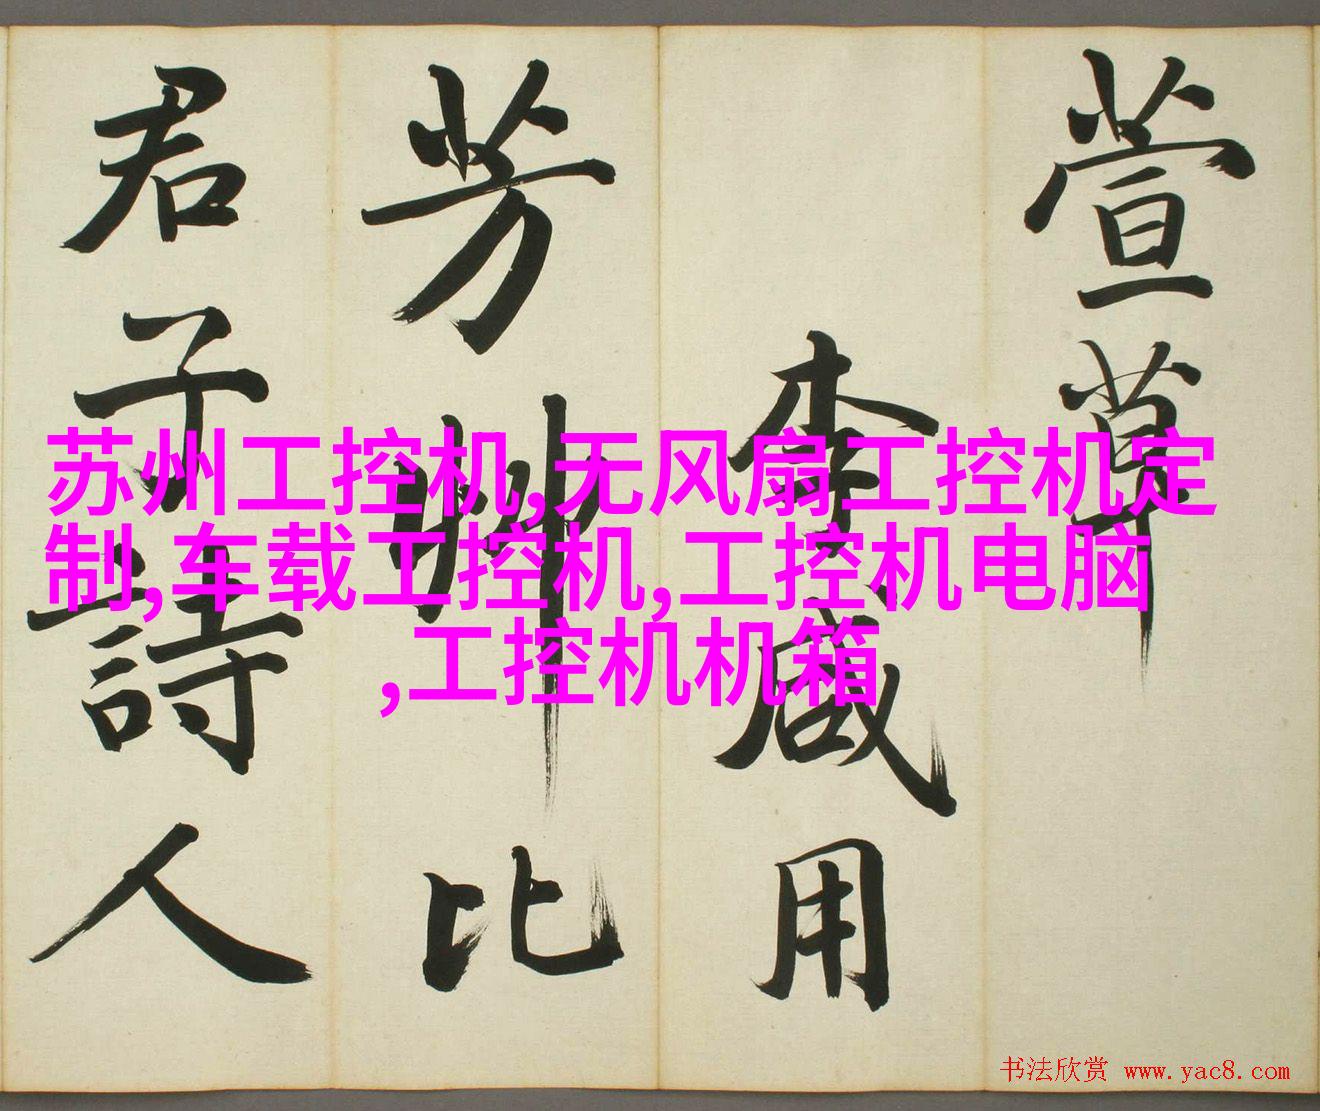 萱草
李咸用
芳艸比
君子詩人
苏州工控机,无风扇工控机定
制,车载工控机,工控机电脑
,工控机机箱
书法欣赏 www.yac8.com